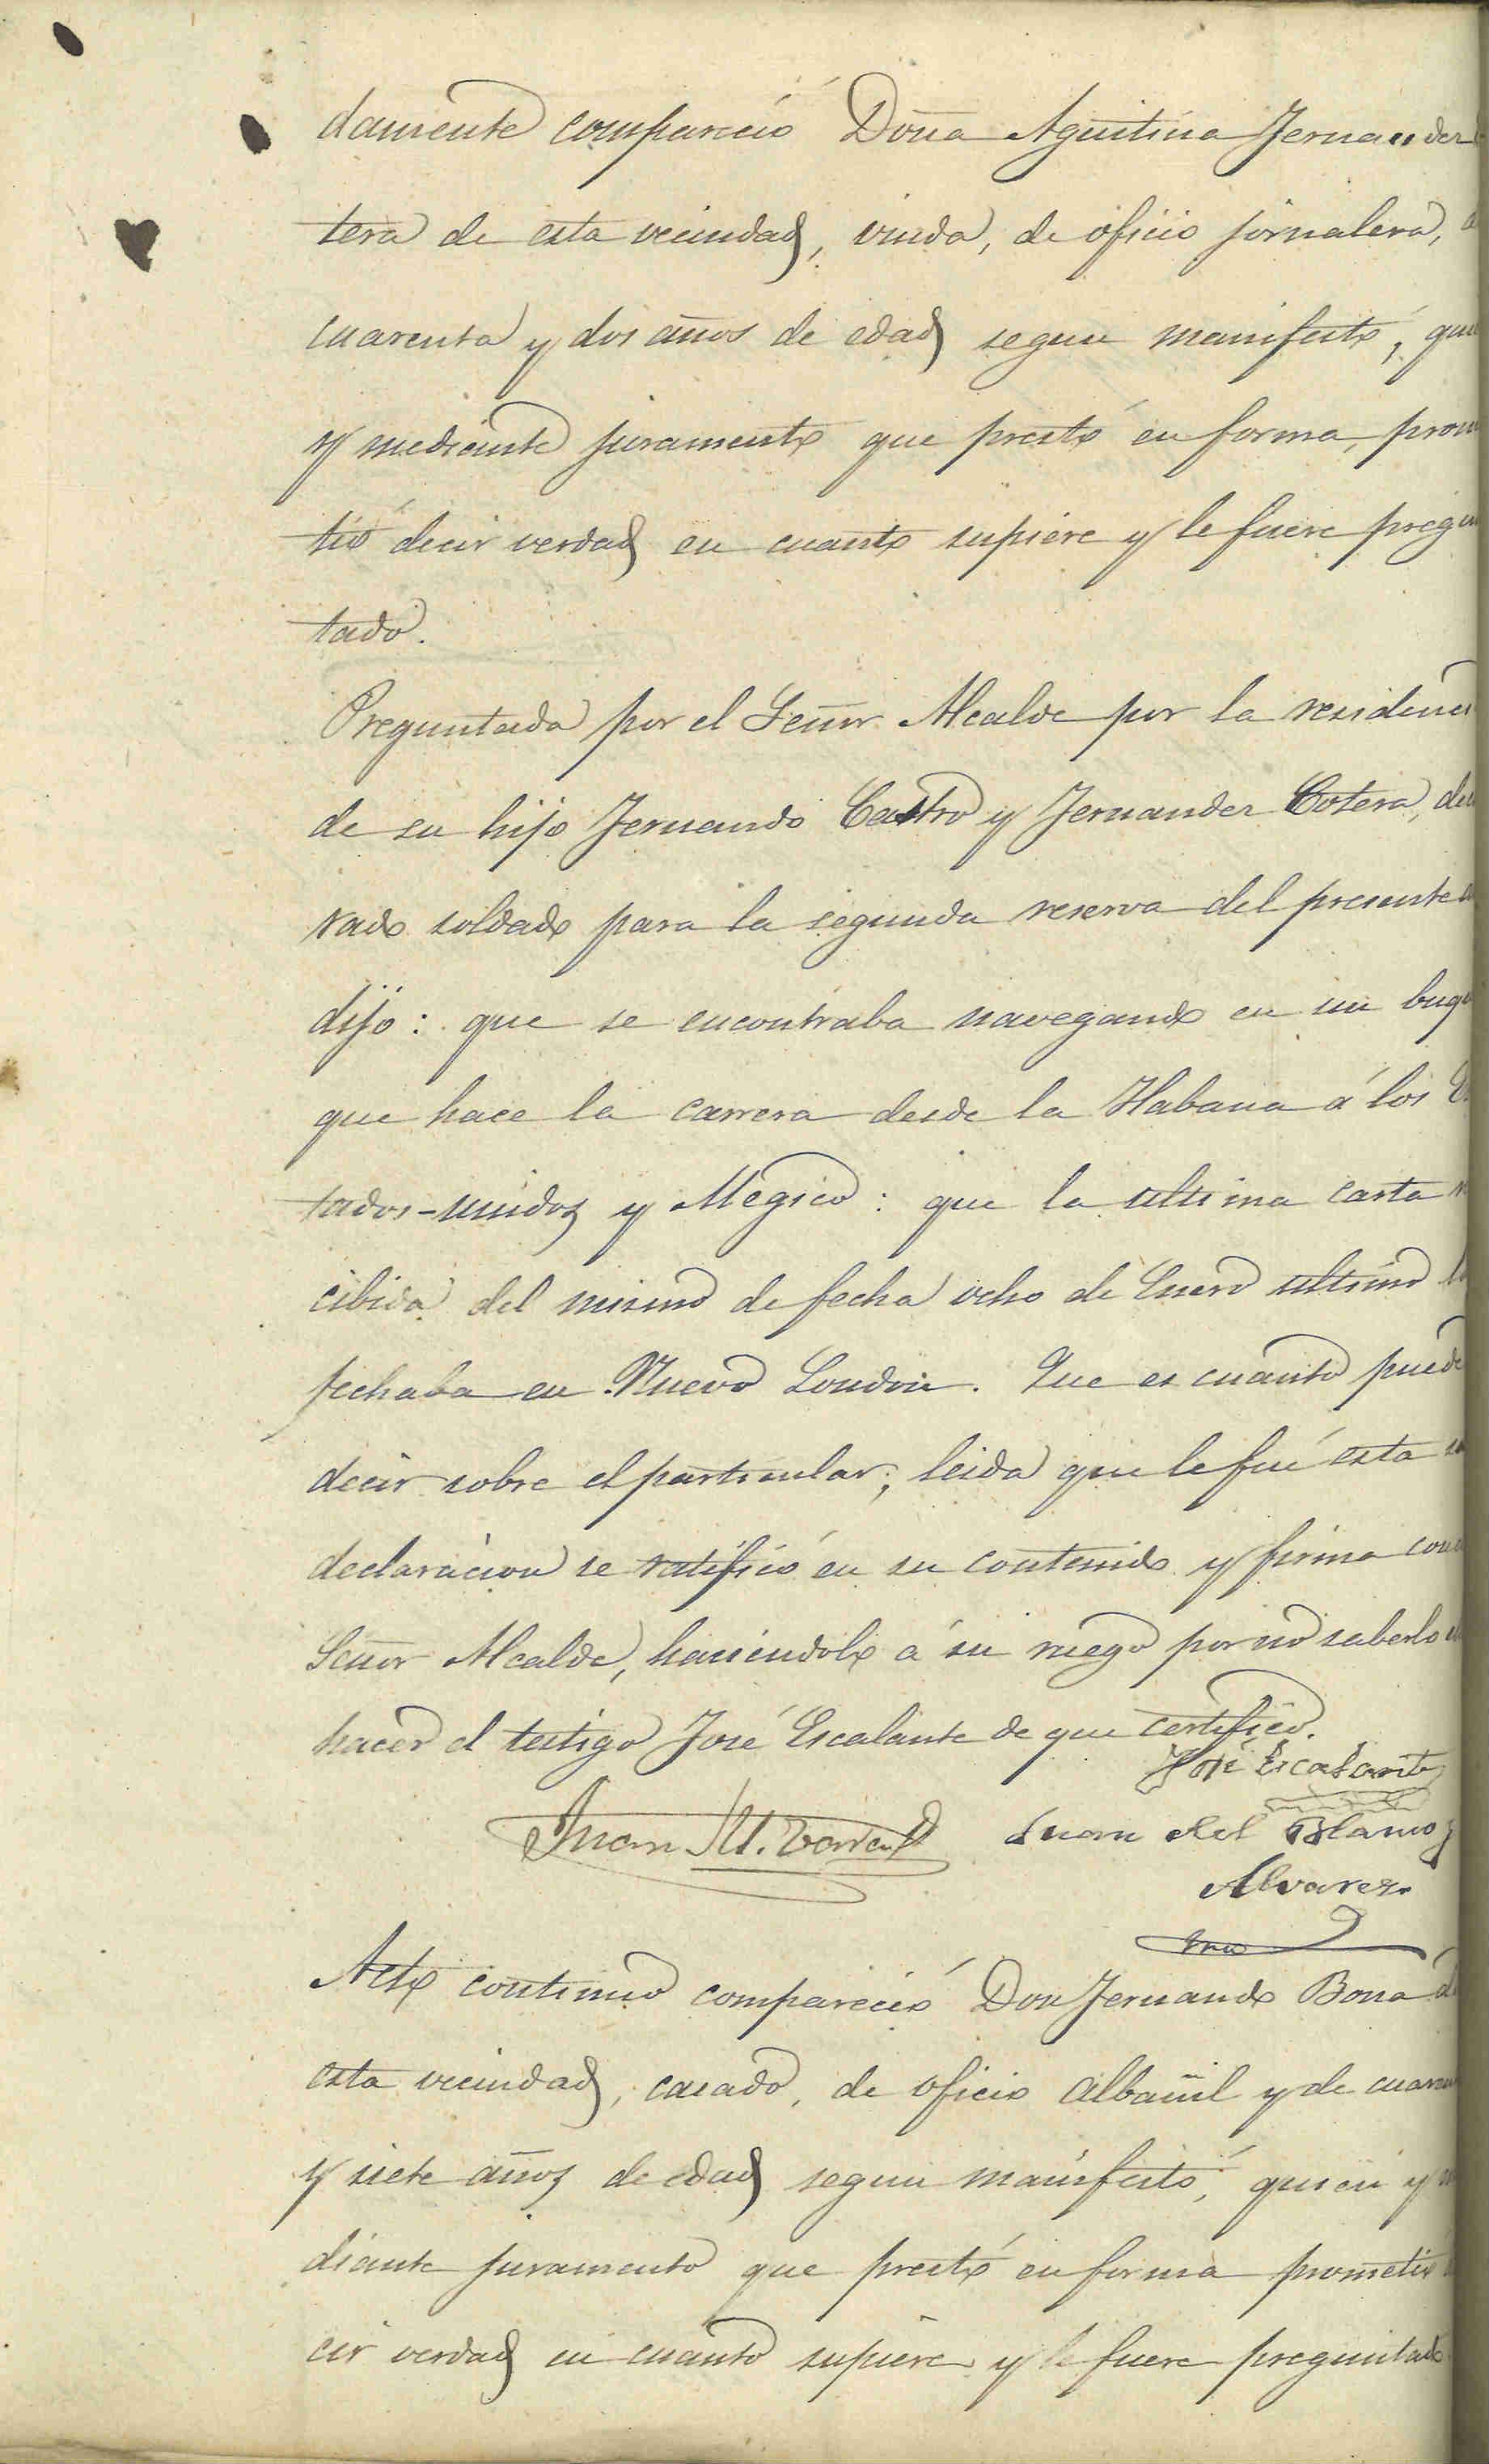 damente compareció Doña Agustina Fernandez
tera de esta vecindad, viuda, de oficio jornalera,
cuarenta y dos años de edad segun manifestó, quie
y mediante juramento que prestó en forma, prom
tió decir verdad en cuanto supiere y le fuere pregun
tado.
Preguntada por el Señor Alcalde por la residenci
de su hijo Fernando Castro y Fernandez Cotera, decl
rado soldado para la segunda reserva del presente
dijo: que se encontraba navegando en un buqu
que hace la carrera desde la Habana á los Es
tados-unidos y Megico: que la ultima carta re
cibida del mismo de fecha ocho de Enero ultimo la
fechaba en Nuevo London. Que es cuanto puede
decir sobre el particular; leida que le fué esta su
declaracion se ratificó en su contenido y firma con
Señor Alcalde, haciendolo á su ruego por no saberlo
hacer el testigo José Escalante de que certifico.
José Escalante
Juan M. Juan del Blanco
Alvarez
Acto continuo compareció Don Fernando Bona de
esta vecindad, casado, de oficio albañil y de cuaren
y siete años de edad segun manifestó, quien y me
diante juramento que prestó en forma prometió
cir verdad en cuanto supiere y le fuere preguntado